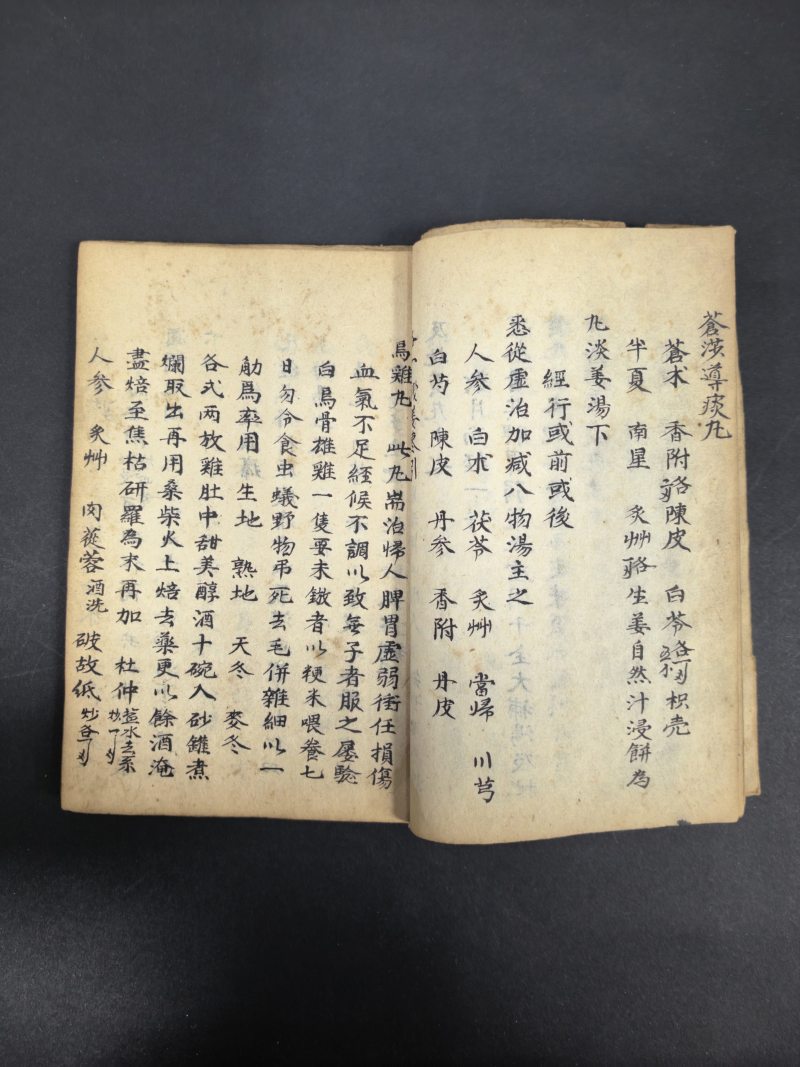 蒼莎導痰丸
蒼朮 香附 各 陳皮 白苓 各 枳壳
半夏 南星 炙艸 各 生姜自然汁浸餅為
丸淡姜湯下
經行或前或後
悉從虛治加减八物湯主之
人參 白朮 茯苓 炙艸 當歸 川芎
白芍 陳皮 丹參 香附 丹皮
烏雞丸 此丸耑治婦人脾胃虛弱冲任損傷
血氣不足經候不調以致無子者服之屡驗
白烏骨雄雞一隻要未鐓者以粳米喂養七
日勿令食虫蟻野物吊死去毛併雜細以一
觔為率用生地 熟地 天冬 麥冬
各弍两放雞肚中甜美醇酒十碗入砂鑵煮
爛取出再用桑柴火上焙去藥更以餘酒淹
盡焙至焦枯研羅為末再加 杜仲 盐水炒去系
人參 炙艸 肉蓯蓉 酒洗 破故紙 炒各